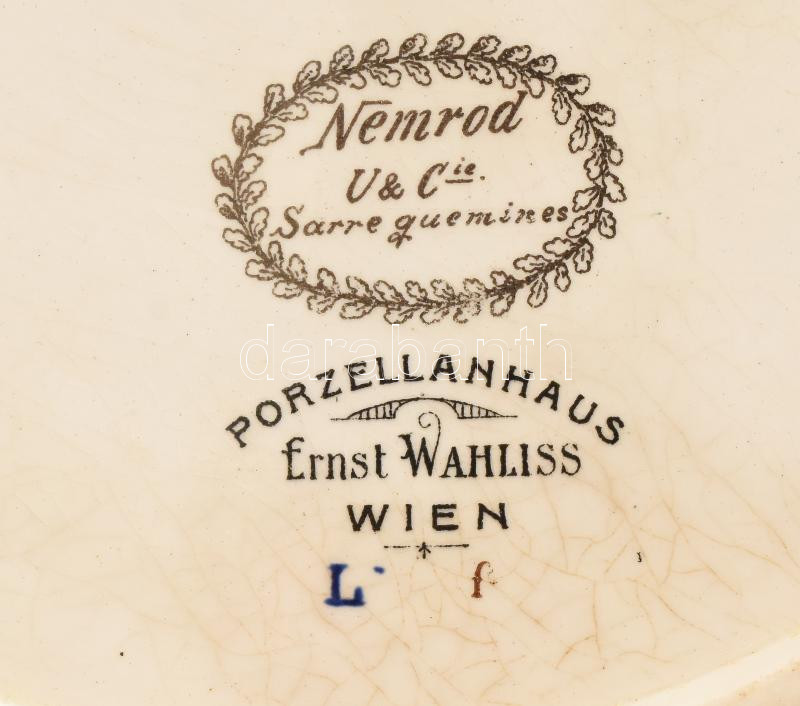 Nemrod
U & Cie.
Sarreguemines
darabanth
PORZELLANHAUS
Ernst WAHLISS
WIEN
L f